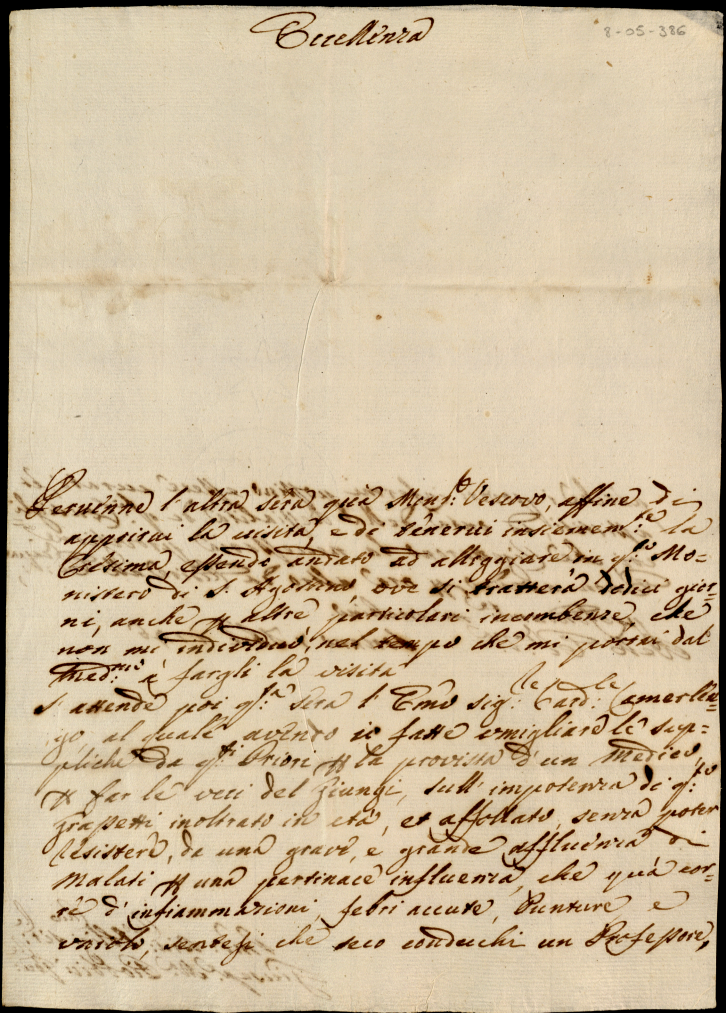 Eccellenza
8-05-386
Pervenne l'altra sera quà Mons.r Vescovo, affine di
apprirui la uisita, e di tenerui insiemem.te la
Cresima, essendo andato ad alleggiare in q.o Mo-
nistero di S. Agostino, ove si tratterà dodici gior-
ni, anche per altre particolari incumbenze, che
non mi individuò, nel tempo che mi portai dal
med.mo à fargli la visita
S'attende poi q.a sera l'Emo Sig.le Card.le Camerlen-
go, al quale avendo io fatte umigliare le sup-
pliche da q.ti Priori per la provista d'un Medico,
per far le veci del Ziungi, sull'impotenza di q.o
Grassetti inoltrato in età, et affollato, senza poter
resistere, da una grave, e grande affluenza di
Malati per una pertinace influenza, che quà cor-
re d'infiammazioni, febri accute, Punture e
vaioli, sentesi che seco conducchi un Professore,